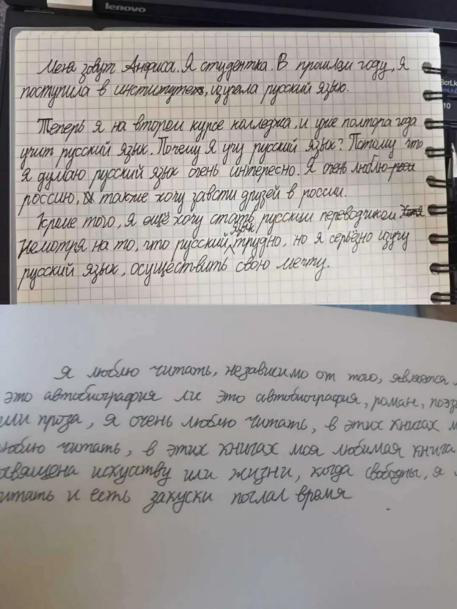 lenovo
Меня зовут Анфиса. Я студентка. В прошлом году, я
поступила в институте, изучела русский язык.
Теперь я на втором курсе колледжа, и уже полтора года
учит русский язык. Почему я учу русский язык? Потому что
я думаю русский язык очень интересно. Я очень люблю
россию, также хочу завсти друзей в россии.
Кроме того, я ещё хочу стать русским переводчиком
Несмотря на то, что русский язык трудно, но я серьёзно изучу
русский язык, осуществить свою мечту.
Я люблю читать, независимо от того, является
это автобиография ли это автобиография, роман, поэз
или проза, я очень люблю читать, в этих книгах м
люблю читать, в этих книгах моя любимая книга
освящена искуству или жизни, когда свободны, я
читать и есть закуски поглал время